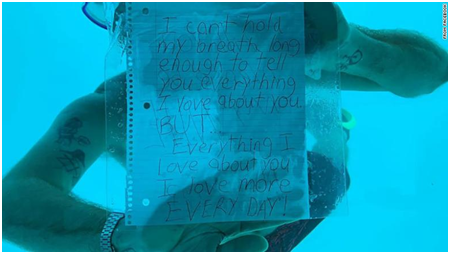 I can't hold
my breath long
enough to tell
you everything
I love about you
BUT
Everything I
love about you
I love more
EVERY DAY!
FROM FACEBOOK